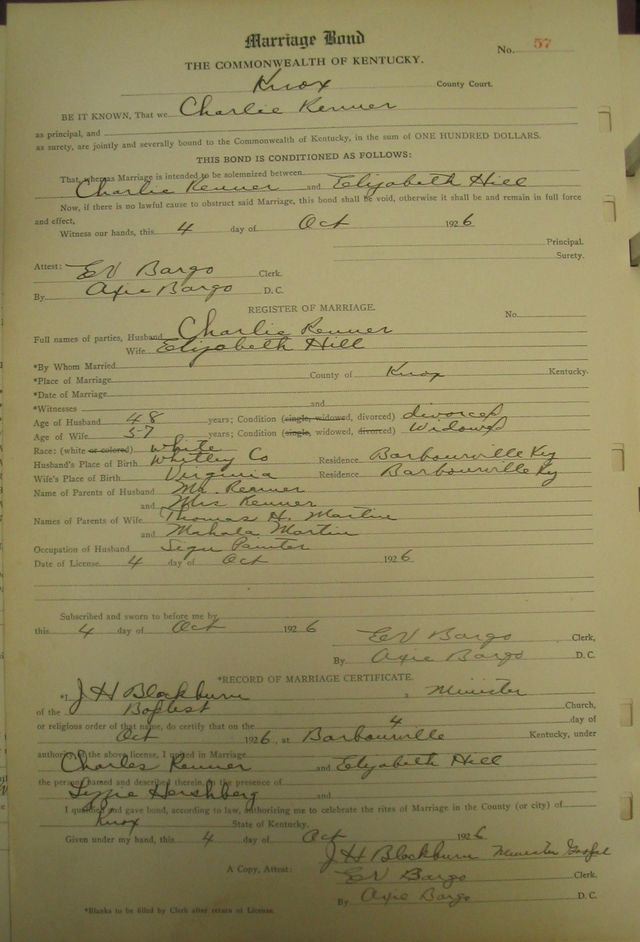 Marriage Bond
No. 57
THE COMMONWEALTH OF KENTUCKY.
Knox County Court.
BE IT KNOWN, That we Charlie Renner
as principal, and
as surety, are jointly and severally bound to the Commonwealth of Kentucky, in the sum of ONE HUNDRED DOLLARS.
THIS BOND IS CONDITIONED AS FOLLOWS:
That, whereas Marriage is intended to be solemnized between
Charlie Renner and Elizabeth Hill
Now, if there is no lawful cause to obstruct said Marriage, this bond shall be void, otherwise it shall be and remain in full force
and effect,
Witness our hands, this 4 day of Oct 1926
Principal.
Surety.
Attest: EV Bargo Clerk.
By Axie Bargo D. C.
REGISTER OF MARRIAGE.
No.
Full names of parties, Husband Charlie Renner
Wife Elizabeth Hill
*By Whom Married
*Place of Marriage County of Knox Kentucky.
*Date of Marriage
*Witnesses and
Age of Husband 48 years; Condition (single, widowed, divorced) divorced
Age of Wife 57 years; Condition (single, widowed, divorced) Widowed
Race: (white or colored) white
Husband's Place of Birth Whitley Co Residence Barbourville Ky
Wife's Place of Birth Virginia Residence Barbourville Ky
Name of Parents of Husband Mr. Renner
and Mrs Renner
Names of Parents of Wife Thomas H. Martin
and Mahala Martin
Occupation of Husband Sign Painter
Date of License 4 day of Oct 1926
Subscribed and sworn to before me by
this 4 day of Oct 1926
EV Bargo Clerk,
By Axie Bargo D. C.
*RECORD OF MARRIAGE CERTIFICATE.
*I J H Blackburn a Minister
of the Baptist Church,
or religious order of that name, do certify that on the 4 day of
Oct 1926, at Barbourville Kentucky, under
authority of the above license, I united in Marriage
Charles Renner and Elizabeth Hill
the persons named and described therein, in the presence of
Lizzie Hershberg and
I qualified and gave bond, according to law, authorizing me to celebrate the rites of Marriage in the County (or city) of
Knox State of Kentucky.
Given under my hand, this 4 day of Oct 1926
J H Blackburn Minister Gospel
A Copy, Attest: EV Bargo Clerk.
By Axie Bargo D. C.
*Blanks to be filled by Clerk after return of License.